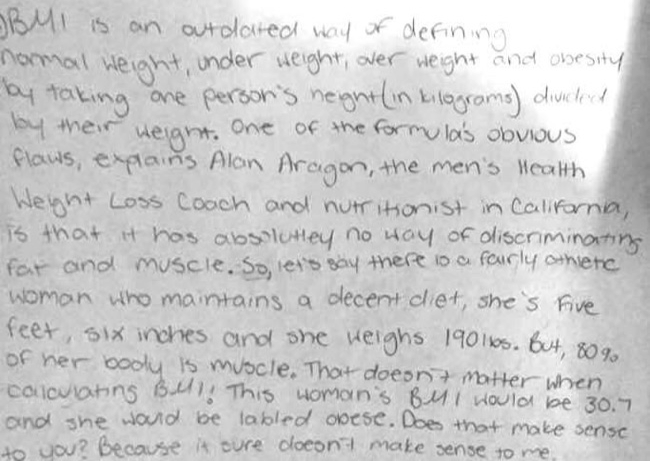 BMI is an outdated way of defining
normal weight, under weight, over weight and obesity
by taking one person's height (in kilograms) divided
by their weight. One of the formula's obvious
flaws, explains Alan Aragon, the men's Health
Weight Loss Coach and nutritionist in California,
is that it has absolutley no way of discriminating
fat and muscle. So, let's say there is a fairly athletic
woman who maintains a decent diet, she's five
feet, six inches and she weighs 190 lbs. But, 80%
of her body is muscle. That doesn't matter when
calculating BMI! This woman's BMI would be 30.7
and she would be labled obese. Does that make sense
to you? Because it sure doesn't make sense to me.